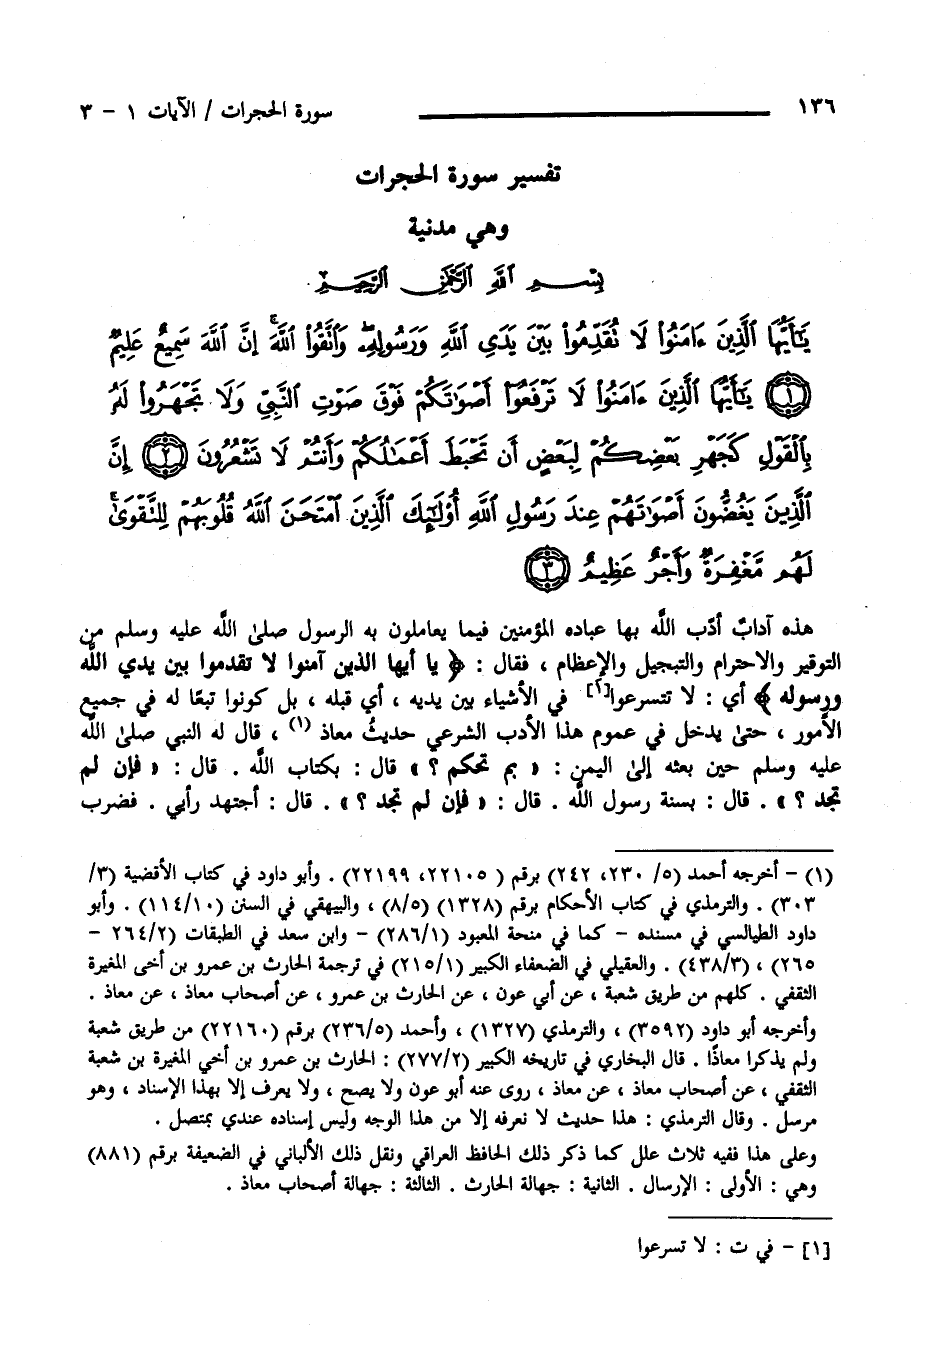 ١٣٦ سورة الحجرات / الآيات ١ - ٣
تفسير سورة الحجرات
وهي مدنية
بِسْمِ ٱللَّهِ ٱلرَّحْمَٰنِ ٱلرَّحِيمِ
يَٰٓأَيُّهَا ٱلَّذِينَ ءَامَنُوا۟ لَا تُقَدِّمُوا۟ بَيْنَ يَدَىِ ٱللَّهِ وَرَسُولِهِۦ ۖ وَٱتَّقُوا۟ ٱللَّهَ ۚ إِنَّ ٱللَّهَ سَمِيعٌ عَلِيمٌ
﴿١﴾ يَٰٓأَيُّهَا ٱلَّذِينَ ءَامَنُوا۟ لَا تَرْفَعُوٓا۟ أَصْوَٰتَكُمْ فَوْقَ صَوْتِ ٱلنَّبِىِّ وَلَا تَجْهَرُوا۟ لَهُۥ
بِٱلْقَوْلِ كَجَهْرِ بَعْضِكُمْ لِبَعْضٍ أَن تَحْبَطَ أَعْمَٰلُكُمْ وَأَنتُمْ لَا تَشْعُرُونَ ﴿٢﴾ إِنَّ
ٱلَّذِينَ يَغُضُّونَ أَصْوَٰتَهُمْ عِندَ رَسُولِ ٱللَّهِ أُو۟لَٰٓئِكَ ٱلَّذِينَ ٱمْتَحَنَ ٱللَّهُ قُلُوبَهُمْ لِلتَّقْوَىٰ ۚ
لَهُم مَّغْفِرَةٌ وَأَجْرٌ عَظِيمٌ ﴿٣﴾
هذه آدابٌ أدّب اللَّه بها عباده المؤمنين فيما يعاملون به الرسول صلىٰ اللَّه عليه وسلم من
التوقير والاحترام والتبجيل والإعظام ، فقال : ﴿ يا أيها الذين آمنوا لا تقدموا بين يدي اللَّه
ورسوله ﴾ أي : لا تتسرعوا[١] في الأشياء بين يديه ، أي قبله ، بل كونوا تبعًا له في جميع
الأمور ، حتىٰ يدخل في عموم هذا الأدب الشرعي حديثُ معاذ (١) ، قال له النبي صلىٰ اللَّه
عليه وسلم حين بعثه إلىٰ اليمن : « بم تحكم ؟ » قال : بكتاب اللَّه . قال : « فإن لم
تجد ؟ » . قال : بسنة رسول اللَّه . قال : « فإن لم تجد ؟ » . قال : أجتهد رأيي . فضرب
(١) - أخرجه أحمد (٥/ ٢٣٠، ٢٤٢) برقم ( ٢٢١٠٥، ٢٢١٩٩) . وأبو داود في كتاب الأقضية (٣/
٣٠٣) . والترمذي في كتاب الأحكام برقم (١٣٢٨) (٨/٥) ، والبيهقي في السنن (١١٤/١٠) . وأبو
داود الطيالسي في مسنده - كما في منحة المعبود (٢٨٦/١) - وابن سعد في الطبقات (٢٦٤/٢ -
٢٦٥) ، (٤٣٨/٣) . والعقيلي في الضعفاء الكبير (٢١٥/١) في ترجمة الحارث بن عمرو بن أخى المغيرة
الثقفي . كلهم من طريق شعبة ، عن أبي عون ، عن الحارث بن عمرو ، عن أصحاب معاذ ، عن معاذ .
وأخرجه أبو داود (٣٥٩٢) ، والترمذي (١٣٢٧) ، وأحمد (٢٣٦/٥) برقم (٢٢١٦٠) من طريق شعبة
ولم يذكرا معاذًا . قال البخاري في تاريخه الكبير (٢٧٧/٢) : الحارث بن عمرو بن أخي المغيرة بن شعبة
الثقفي ، عن أصحاب معاذ ، عن معاذ ، روى عنه أبو عون ولا يصح ، ولا يعرف إلا بهذا الإسناد ، وهو
مرسل . وقال الترمذي : هذا حديث لا نعرفه إلا من هذا الوجه وليس إسناده عندي بمتصل .
وعلى هذا ففيه ثلاث علل كما ذكر ذلك الحافظ العراقي ونقل ذلك الألباني في الضعيفة برقم (٨٨١)
وهي : الأولى : الإرسال . الثانية : جهالة الحارث . الثالثة : جهالة أصحاب معاذ .
[١] - في ت : لا تسرعوا